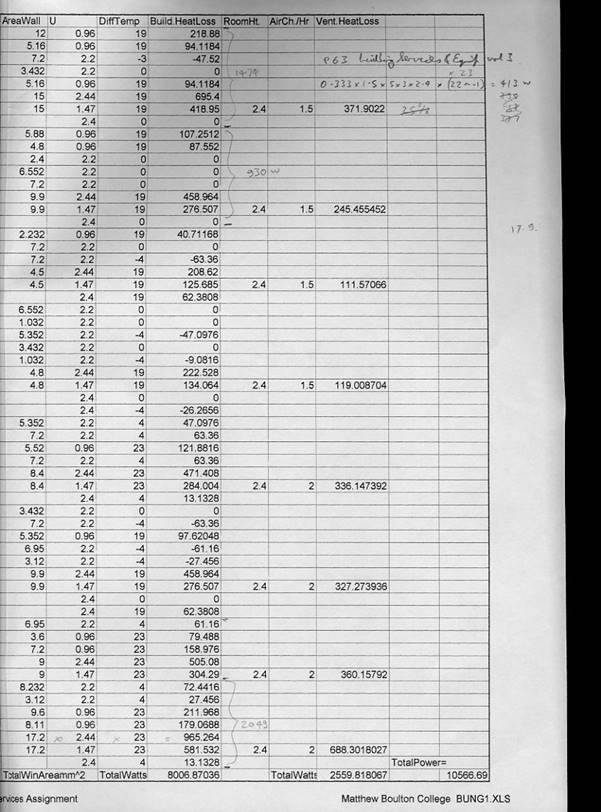 AreaWall U DiffTemp Build.HeatLoss RoomHt. AirCh./Hr Vent.HeatLoss
12 0.96 19 218.88
5.16 0.96 19 94.1184
7.2 2.2 -3 -47.52 P 63 Building Services & Equip vol 3
3.432 2.2 0 0 1979 × 23
5.16 0.96 19 94.1184 0.333 × 1.5 × 5 × 3 × 2.4 × (22 - -1) = 413 w
15 2.44 19 695.4
15 1.47 19 418.95 2.4 1.5 371.9022
2.4 0 0
5.88 0.96 19 107.2512
4.8 0.96 19 87.552
2.4 2.2 0 0
6.552 2.2 0 0 930 w
7.2 2.2 0 0
9.9 2.44 19 458.964
9.9 1.47 19 276.507 2.4 1.5 245.455452
2.4 0 0
2.232 0.96 19 40.71168 17.9.
7.2 2.2 0 0
7.2 2.2 -4 -63.36
4.5 2.44 19 208.62
4.5 1.47 19 125.685 2.4 1.5 111.57066
2.4 19 62.3808
6.552 2.2 0 0
1.032 2.2 0 0
5.352 2.2 -4 -47.0976
3.432 2.2 0 0
1.032 2.2 -4 -9.0816
4.8 2.44 19 222.528
4.8 1.47 19 134.064 2.4 1.5 119.008704
2.4 0 0
2.4 -4 -26.2656
5.352 2.2 4 47.0976
7.2 2.2 4 63.36
5.52 0.96 23 121.8816
7.2 2.2 4 63.36
8.4 2.44 23 471.408
8.4 1.47 23 284.004 2.4 2 336.147392
2.4 4 13.1328
3.432 2.2 0 0
7.2 2.2 -4 -63.36
5.352 0.96 19 97.62048
6.95 2.2 -4 -61.16
3.12 2.2 -4 -27.456
9.9 2.44 19 458.964
9.9 1.47 19 276.507 2.4 2 327.273936
2.4 0 0
2.4 19 62.3808
6.95 2.2 4 61.16
3.6 0.96 23 79.488
7.2 0.96 23 158.976
9 2.44 23 505.08
9 1.47 23 304.29 2.4 2 360.15792
8.232 2.2 4 72.4416
3.12 2.2 4 27.456
9.6 0.96 23 211.968
8.11 0.96 23 179.0688 2049
17.2 × 2.44 × 23 = 965.264
17.2 1.47 23 581.532 2.4 2 688.3018027
2.4 4 13.1328 TotalPower=
TotalWinAreamm^2 TotalWatts 8006.87036 TotalWatts 2559.818067 10566.69
ervices Assignment Matthew Boulton College BUNG1.XLS